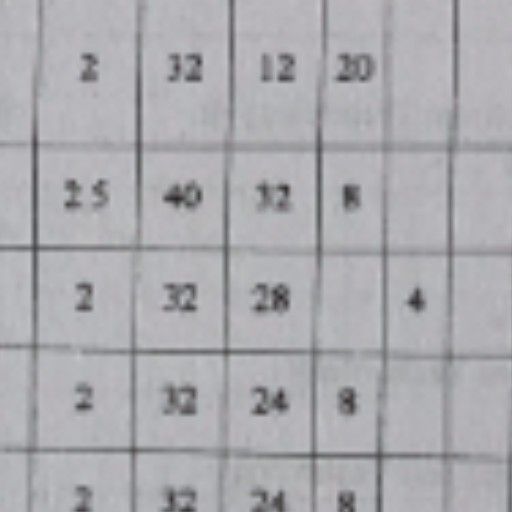 2 32 12 20
2 5 40 32 8
2 32 28 4
2 32 24 8
2 32 24 8